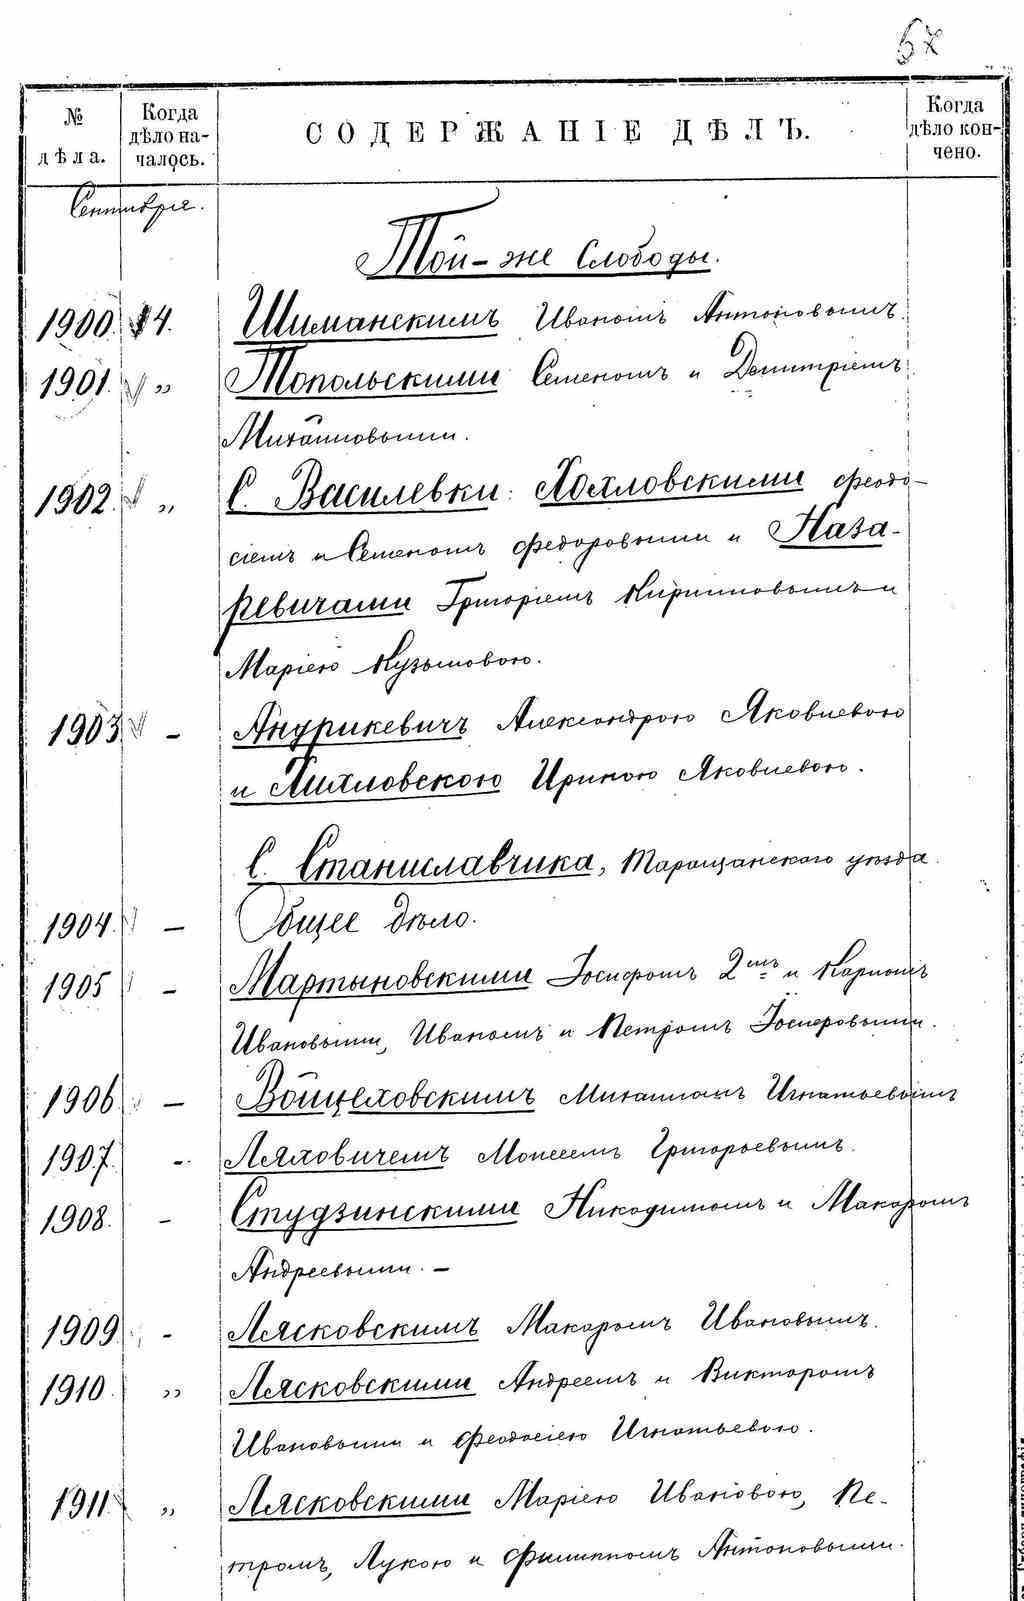 67
№ дѣла.
Когда дѣло началось.
СОДЕРЖАНІЕ ДѢЛЪ.
Когда дѣло кончено.
Сентября.
Той-же Слободы.
1900. 4. Шиманскимъ Иваномъ Антоновымъ.
1901. " Топольскими Семеномъ и Дмитріемъ
Михайловыми.
1902. " С. Василевки: Хохловскими Феодо-
сіемъ и Семеномъ Федоровыми и Наза-
ревичами Григоріемъ Кирилловымъ и
Маріею Кузьмовою.
1903 - Андрикевичъ Александрою Яковлевою
и Михловскою Ириною Яковлевою.
С. Станиславчика, Таращанскаго уѣзда.
1904. - Общее дѣло.
1905 - Мартыновскими Іосифомъ 2мъ и Карпомъ
Ивановыми, Иваномъ и Петромъ Іосифовыми.
1906 - Войцеховскимъ Михаиломъ Игнатьевымъ
1907. - Ляховичемъ Моисеемъ Григорьевымъ.
1908. - Студзинскими Никодимомъ и Макаромъ
Андреевыми. -
1909. - Лясковскимъ Макаромъ Ивановымъ.
1910. " Лясковскими Андреемъ и Викторомъ
Ивановыми и Феодосіею Игнатьевою.
1911. " Лясковскими Маріею Ивановою, Пе-
тромъ, Лукою и Филиппомъ Антоновыми.